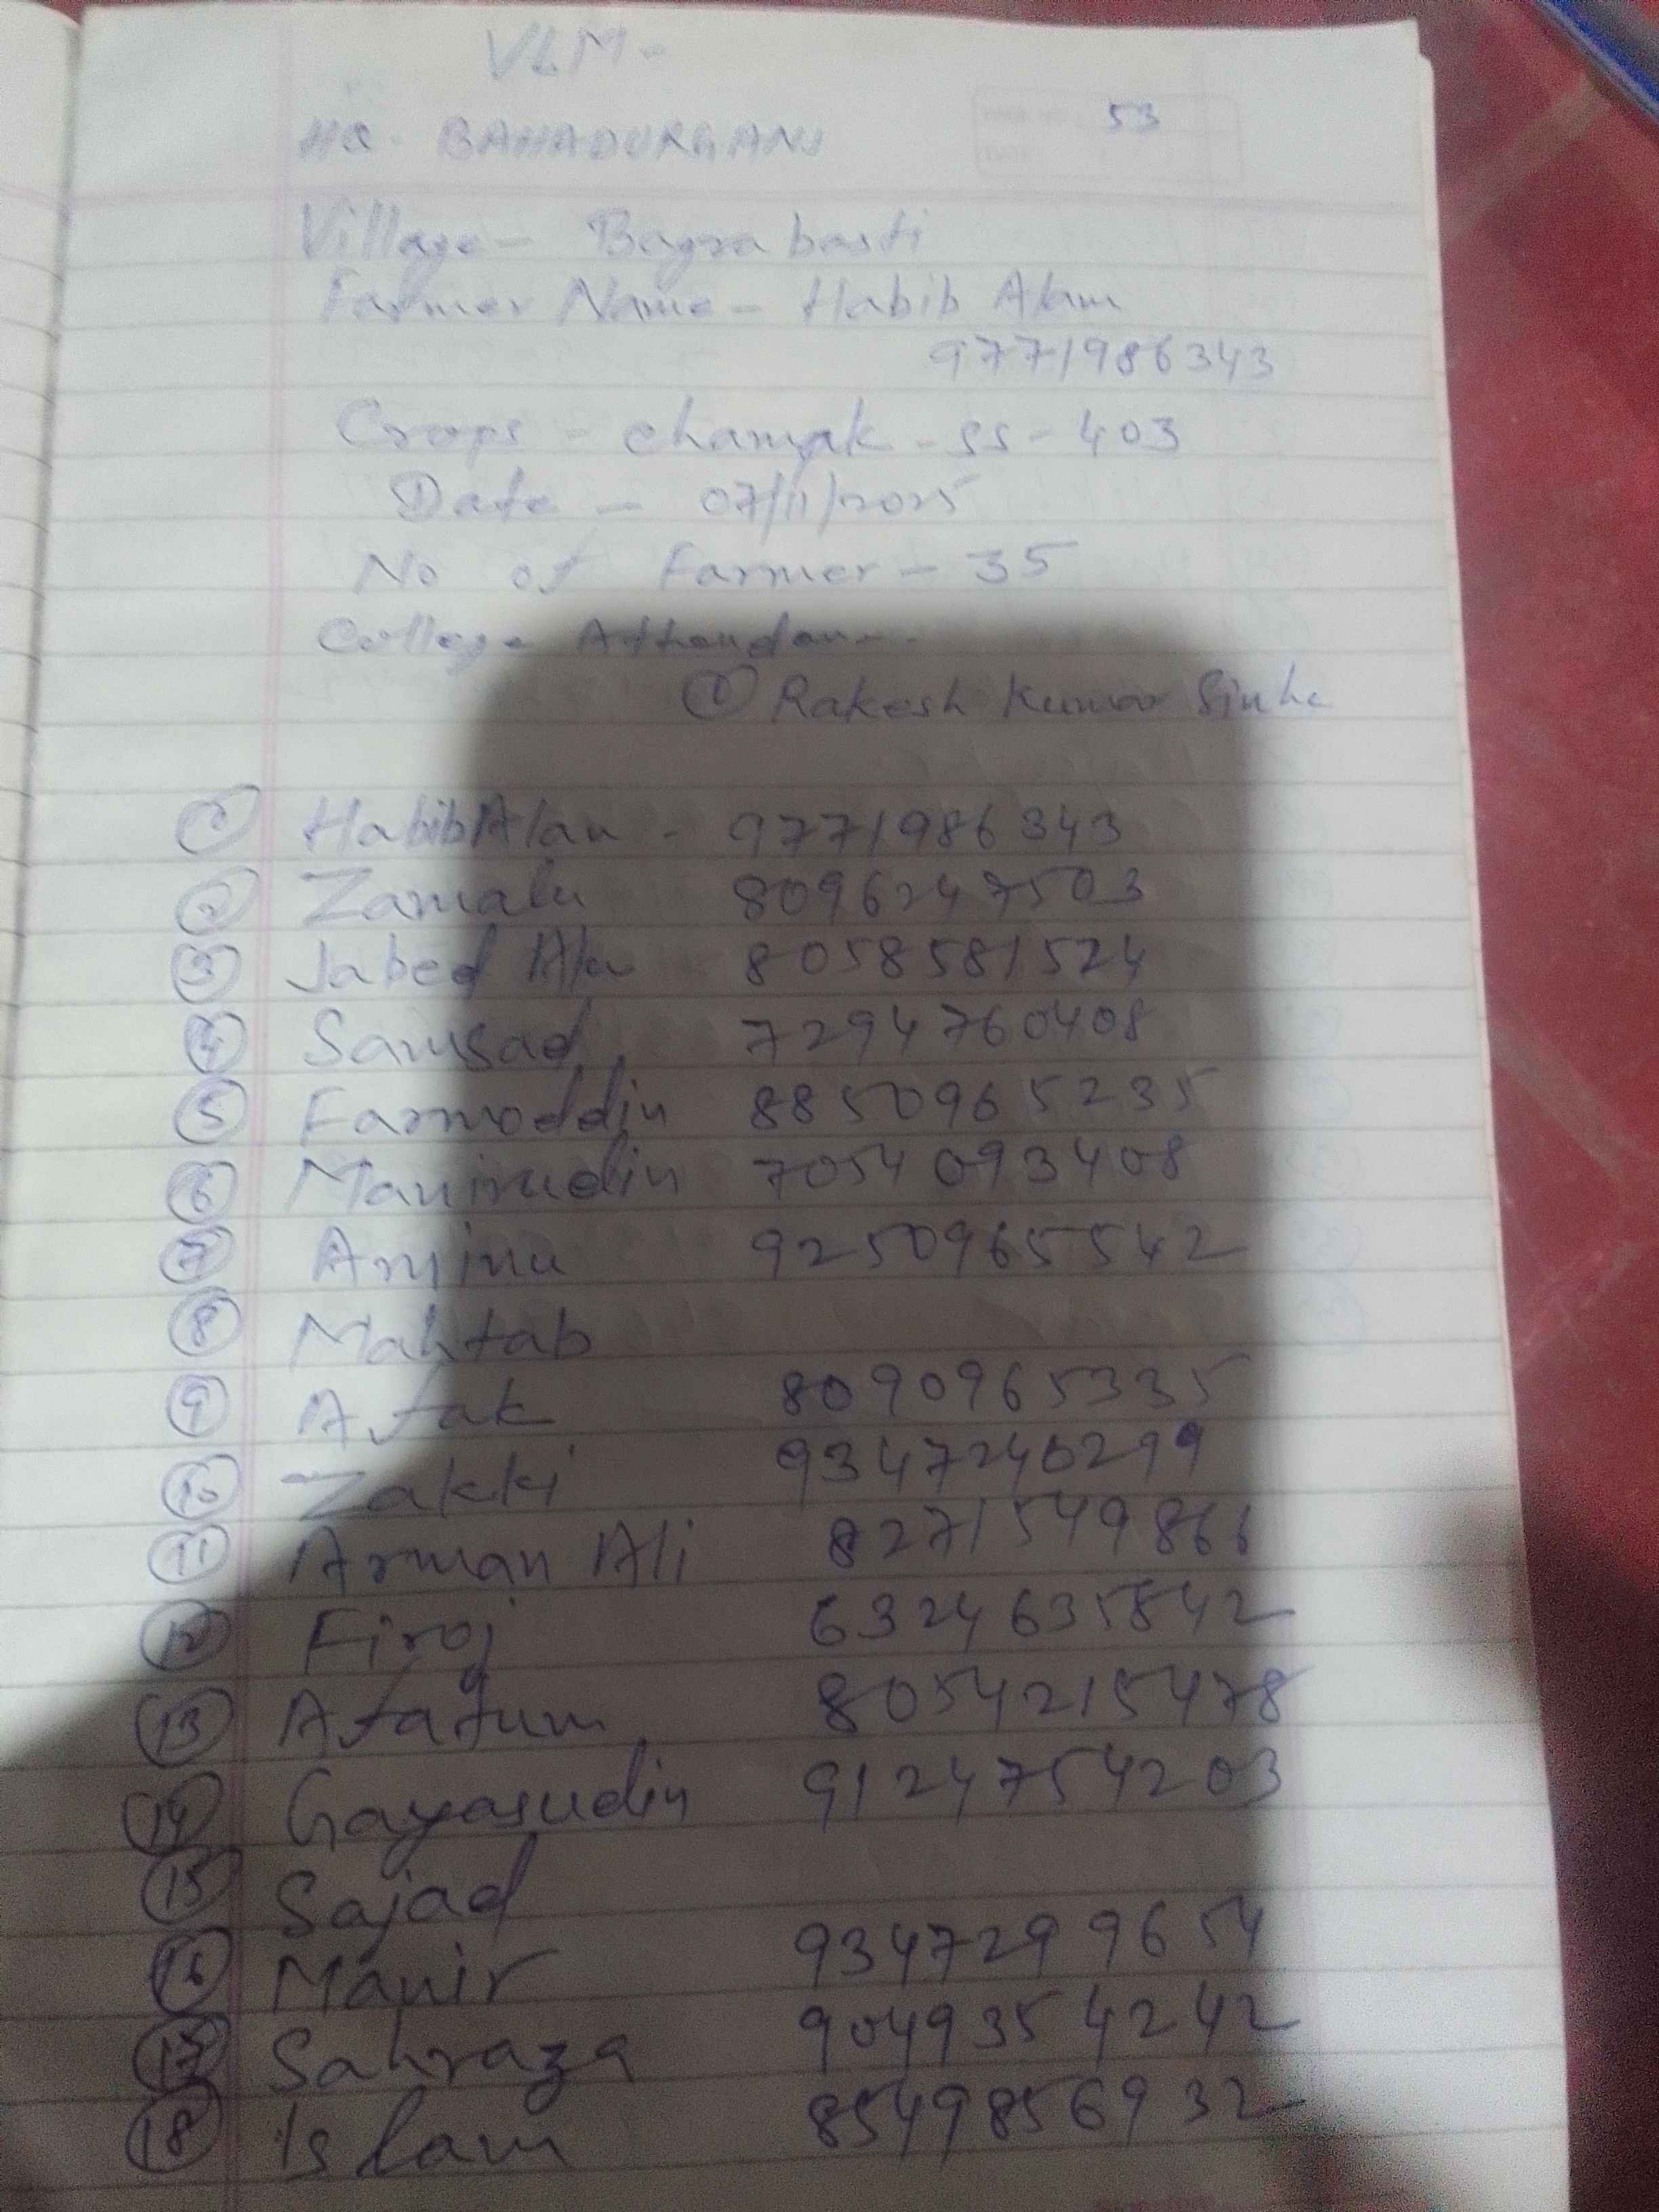 VLM-
53
HQ. BAHADURGANJ
Village - Bagra basti
Farmer Name - Habib Alam
9771986343
Crops - chamak - SS - 403
Date - 07/11/2025
No of Farmer - 35
College Attendan
① Rakesh Kumar Sinha
① Habib Alam - 9771986343
② Zamalu 8096247503
③ Jabed Ala 8058581524
④ Samsad 7294760408
⑤ Farmoddin 8850965235
⑥ Manirudin 7054093408
⑦ 9250965542
⑧ Mahtab
⑨ Afak 8090965335
⑩ Zakki 9347240299
⑪ Arman Ali 8271549866
⑫ Firoj 6324635842
⑬ 8054215478
⑭ Gayasudin 9124754203
⑮ Sajad
⑯ Manir 9347299654
⑰ Sahraza 9049354242
⑱ Islam 8549856932